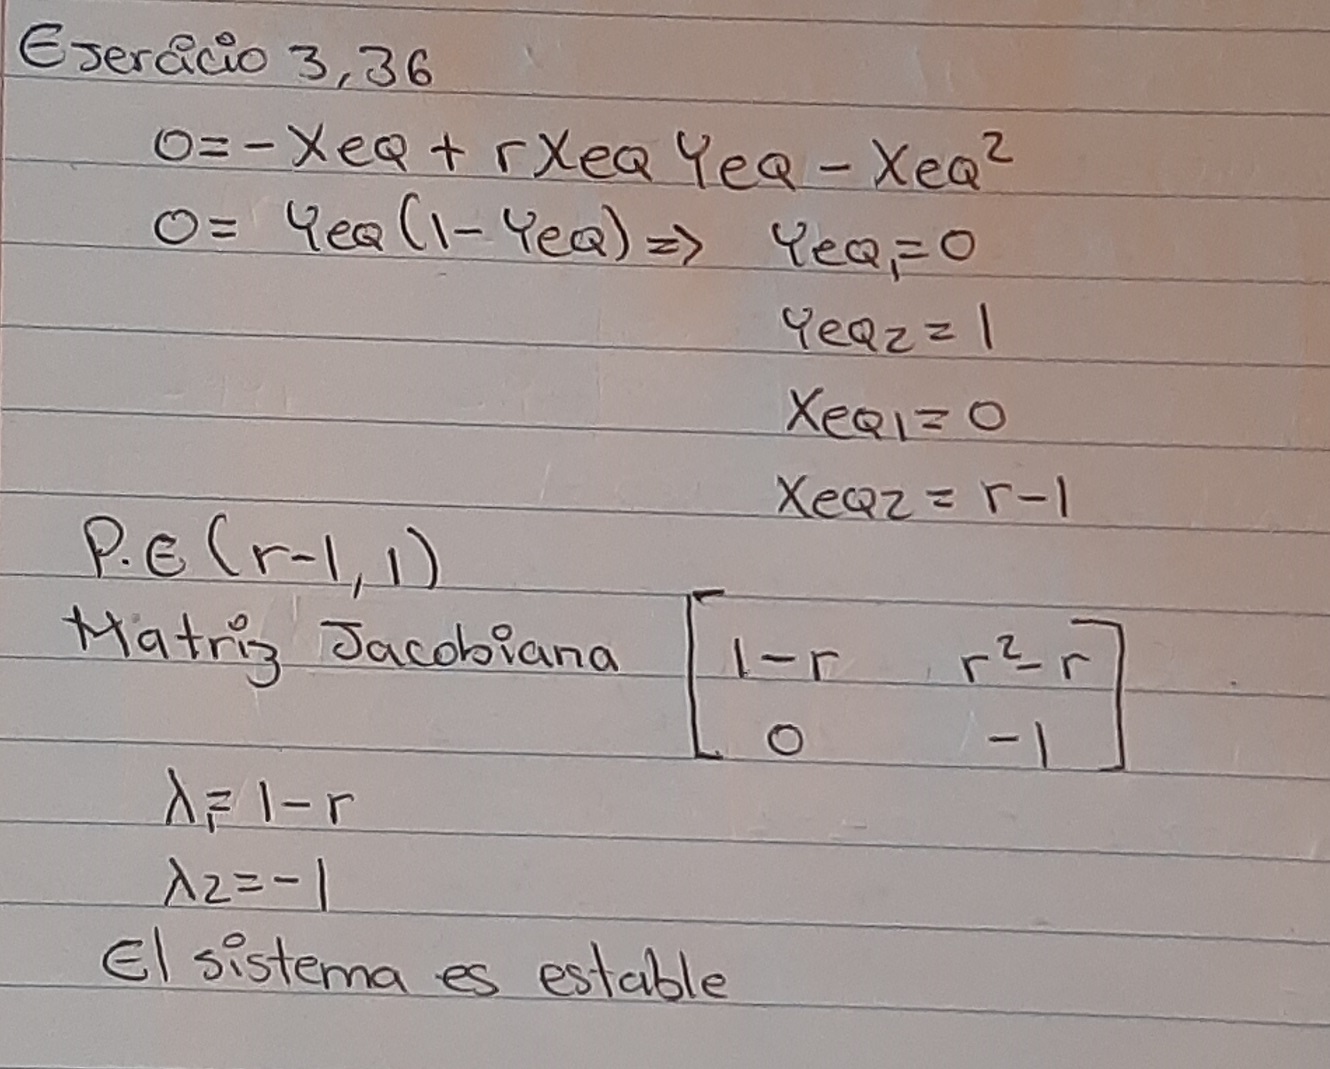 Ejercicio 3,36
0 = - Xeq + r Xeq Yeq - Xeq²
0 = Yeq (1 - Yeq) => Yeq₁ = 0
Yeq2 = 1
Xeq1 = 0
Xeq2 = r - 1
P.E (r-1, 1)
Matriz Jacobiana [1-r r²-r
0 -1]
λ₁ = 1 - r
λ2 = -1
El sistema es estable